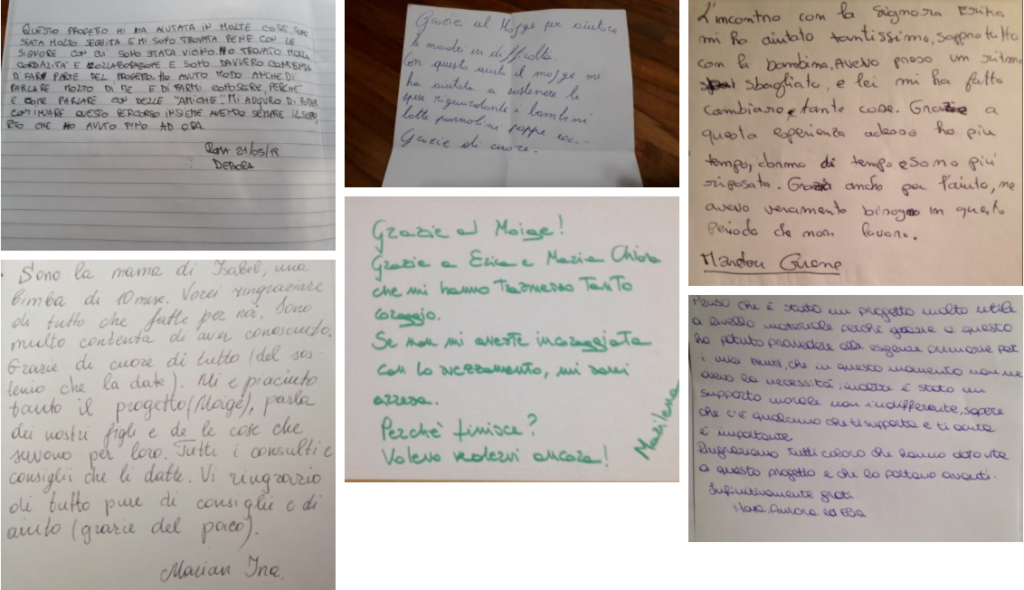 QUESTO PROGETTO MI HA AIUTATA IN MOLTE COSE, SONO
STATA MOLTO SEGUITA E MI SONO TROVATA BENE CON LE
SIGNORE CON CUI SONO STATA VICINO. HO TROVATO MOLTA
CORDIALITÀ E COLLABORAZIONE E SONO DAVVERO CONTENTA
DI FAR PARTE DEL PROGETTO. HO AVUTO MODO ANCHE DI
PARLARE MOLTO DI ME E DI FARMI CONOSCERE, PERCHÈ
È COME PARLARE CON DELLE "AMICHE". MI AUGURO DI POTER
CONTINUARE QUESTO PERCORSO INSIEME AVENDO SEMPRE IL SUPPO
RTO CHE HO AVUTO FINO AD ORA.
ROMA 21/05/19
DEBORA
Sono la mama di Isabel, una
bimba di 10 mese. Vorei ringraziare
di tutto che fatte per noi. Sono
multo contenta di aver conosciuto.
Grazie di cuore di tutto (del sos-
tenio che la date). Mi e piaciuto
tanto il progetto (Moige), parla
dei nostri figli e de le cose che
servono per loro. Tutti i consulti e
consiglii che li datte. Vi ringrazio
di tutto pure di consiglii e di
aiuto (grazie del paco).
Marian Ina.
Grazie al Moige per aiutare
le madri in difficoltà.
Con questo aiuto il moige mi
ha aiutata a sostenere le
spese riguardante i bambini
latte pannolini pappe ecc..
Grazie di cuore.
Grazie al Moige!
Grazie a Erica e Maria Chiara
che mi hanno trasmesso tanto
coraggio.
Se non mi aveste incoraggiata
con lo svezzamento, mi sarei
arresa.
Perchè finisce?
Volevo vedervi ancora!
Marilena
L'incontro con la signora Erika
mi ha aiutato tantissimo, soprattutto
con la bambina. Avevo preso un ritmo
sbagliato, e lei mi ha fatto
cambiare tante cose. Grazie a
questa esperienza adesso ho più
tempo, dormo di tempo e sono più
riposata. Grazie anche per l'aiuto, ne
avevo veramente bisogno in questo
periodo che non lavoro.
Penso che è stato un progetto molto utile
a livello materiale perchè grazie a questo
ho potuto provvedere alle esigenze primarie per
i miei bimbi, che in questo momento non ne
avevo la necessità; inoltre è stato un
supporto morale non indifferente, sapere
che c'è qualcuno che ti supporta e ti aiuta
è importante.
Ringraziamo tutti coloro che hanno dato vita
a questo progetto e che lo portano avanti.
Infinitivamente grati.
Aurora ed Elia